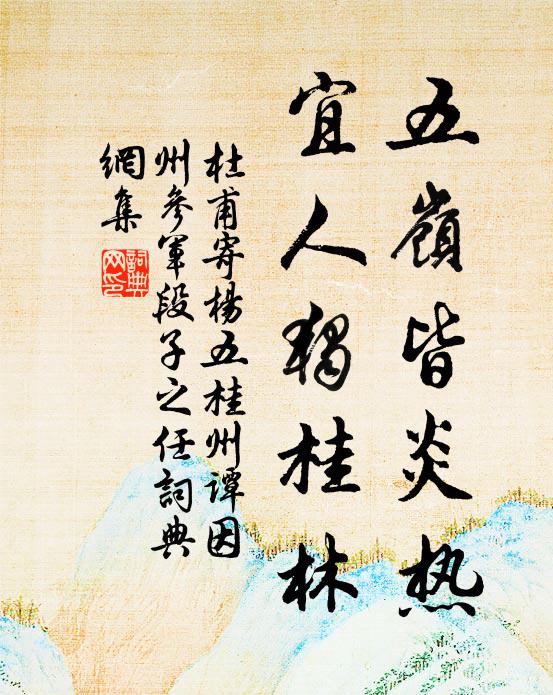 五嶺皆炎热
宜人獨桂林
杜甫寄楊五桂州譚因
州參軍段子之任詞典
網集
詞典
网印